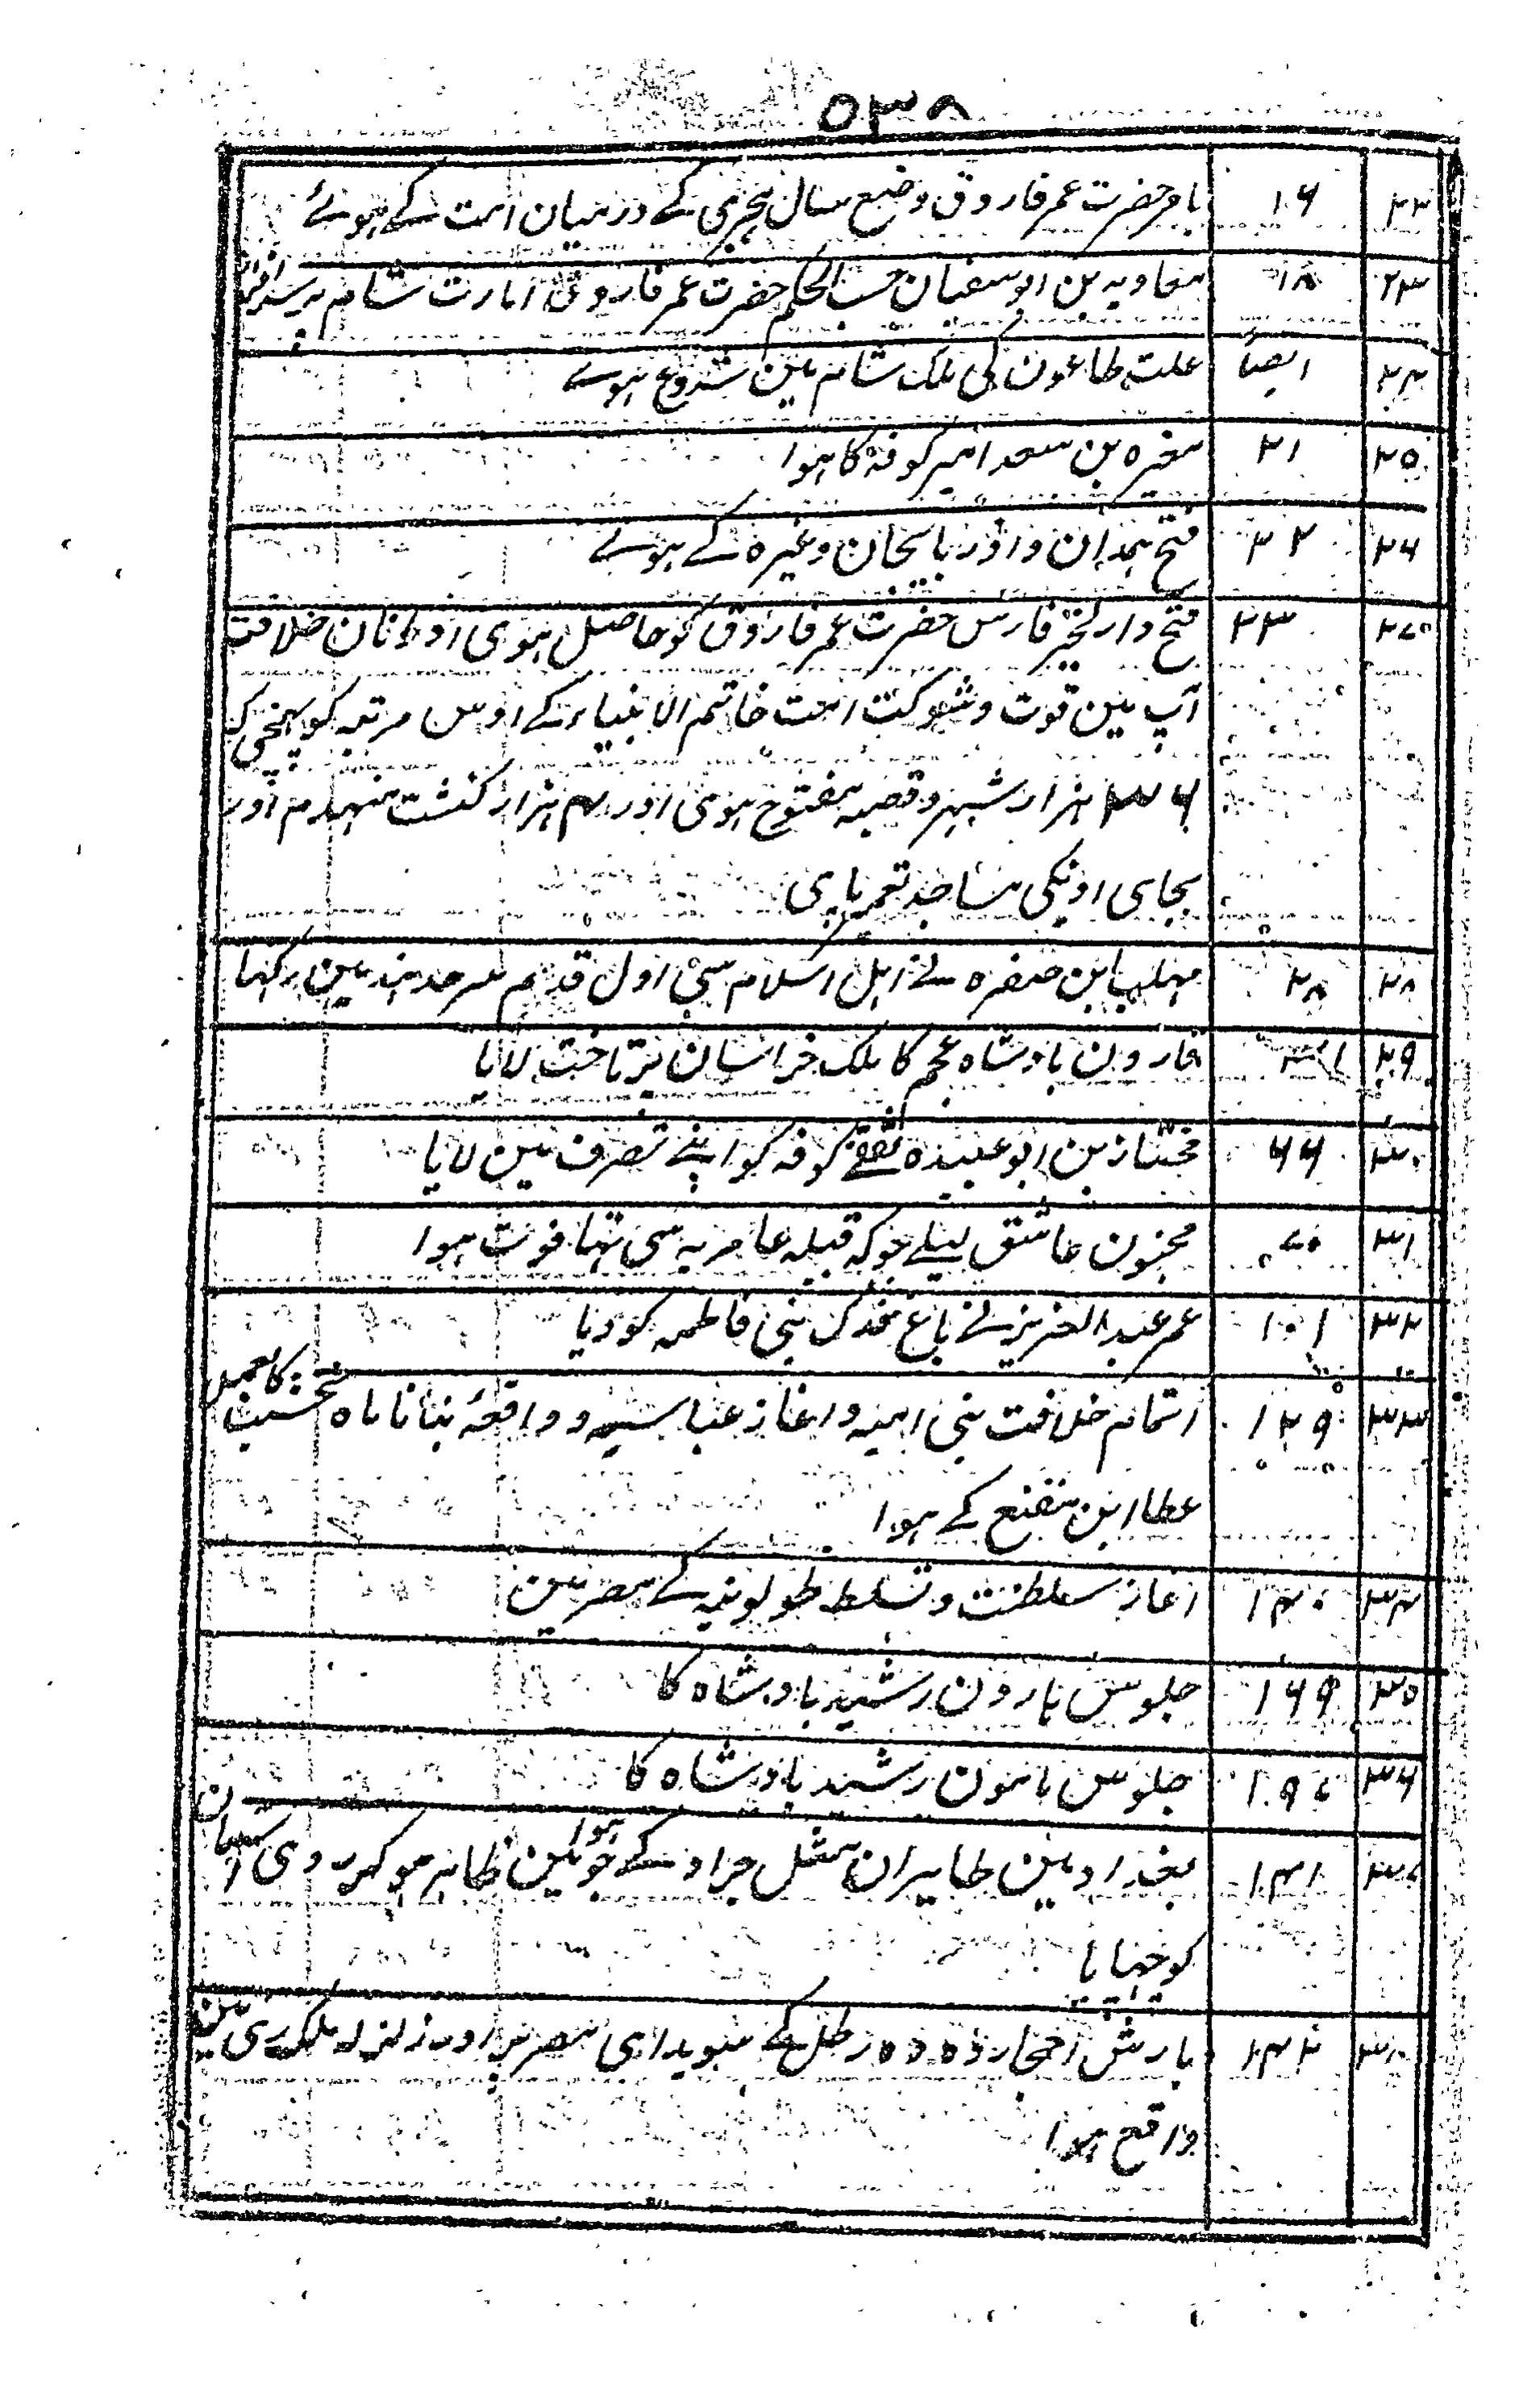 ۵۳۸
۲۲ ۱۶ بامر حضرت عمر فاروق وضع سال ہجری کے درمیان امت کے ہوئے
۲۳ ۱۸ معاویہ بن ابوسفیان حسب الحکم حضرت عمر فاروق امارت شام پر سرافراز
۲۴ ایضاً علت طاعون کی ملک شام مین شروع ہوے
۲۵ ۲۱ مغیرہ بن سعد امیر کوفہ کا ہوا
۲۶ ۲۲ فتح ہمدان و اذربایجان وغیرہ کے ہوے
۲۷ ۲۳ فتح دار فارس حضرت عمر فاروق کو حاصل ہوی اور زمان خلافت
آپ مین قوت و شوکت امت خاتم الانبیاء کے اوس مرتبہ کو پہنچی کہ
۳۶ ہزار شہر و قصبہ مفتوح ہوی اور ۴ ہزار کنشت منہدم اور
بجای اونکی مساجد تعمیر پایی
۲۸ ۲۸ مہلب ابن صفرہ نے اہل اسلام سی اول قدم سرحد ہند مین رکہا
۲۹ ۳۱ قارون بادشاہ عجم کا ملک خراسان پر تاخت لایا
۳۰ ۶۶ مختار بن ابوعبیدہ ثقفے کوفہ کو اپنے تصرف مین لایا
۳۱ ۷۰ مجنون عاشق لیلے جو کہ قبیلہ عامریہ سی تہا فوت ہوا
۳۲ ۱۰۱ عمر عبدالعزیز نے باغ فدک بنی فاطمہ کو دیا
۳۳ ۱۲۹ اتمام خلافت بنی امیہ و اغاز عباسیہ و واقعۂ بنانا ماہ نخشب کا
عطا ابن مقنع کے ہوا
۳۴ ۱۴۰ اغاز سلطنت و تسلط طولونیہ کے مصر مین
۳۵ ۱۶۹ جلوس ہارون رشید بادشاہ کا
۳۶ ۱۹۷ جلوس مامون رشید بادشاہ کا
۳۷ ۱۴۱ بغداد مین طایران مثل جراد کے ہوا مین ظاہر ہوکر روی آسمان
کو چہپایا
۳۸ ۱۴۲ بارش احجار دہ دہ رطل کے مصر پر اور زلزلہ ملک ری مین
واقع ہوا